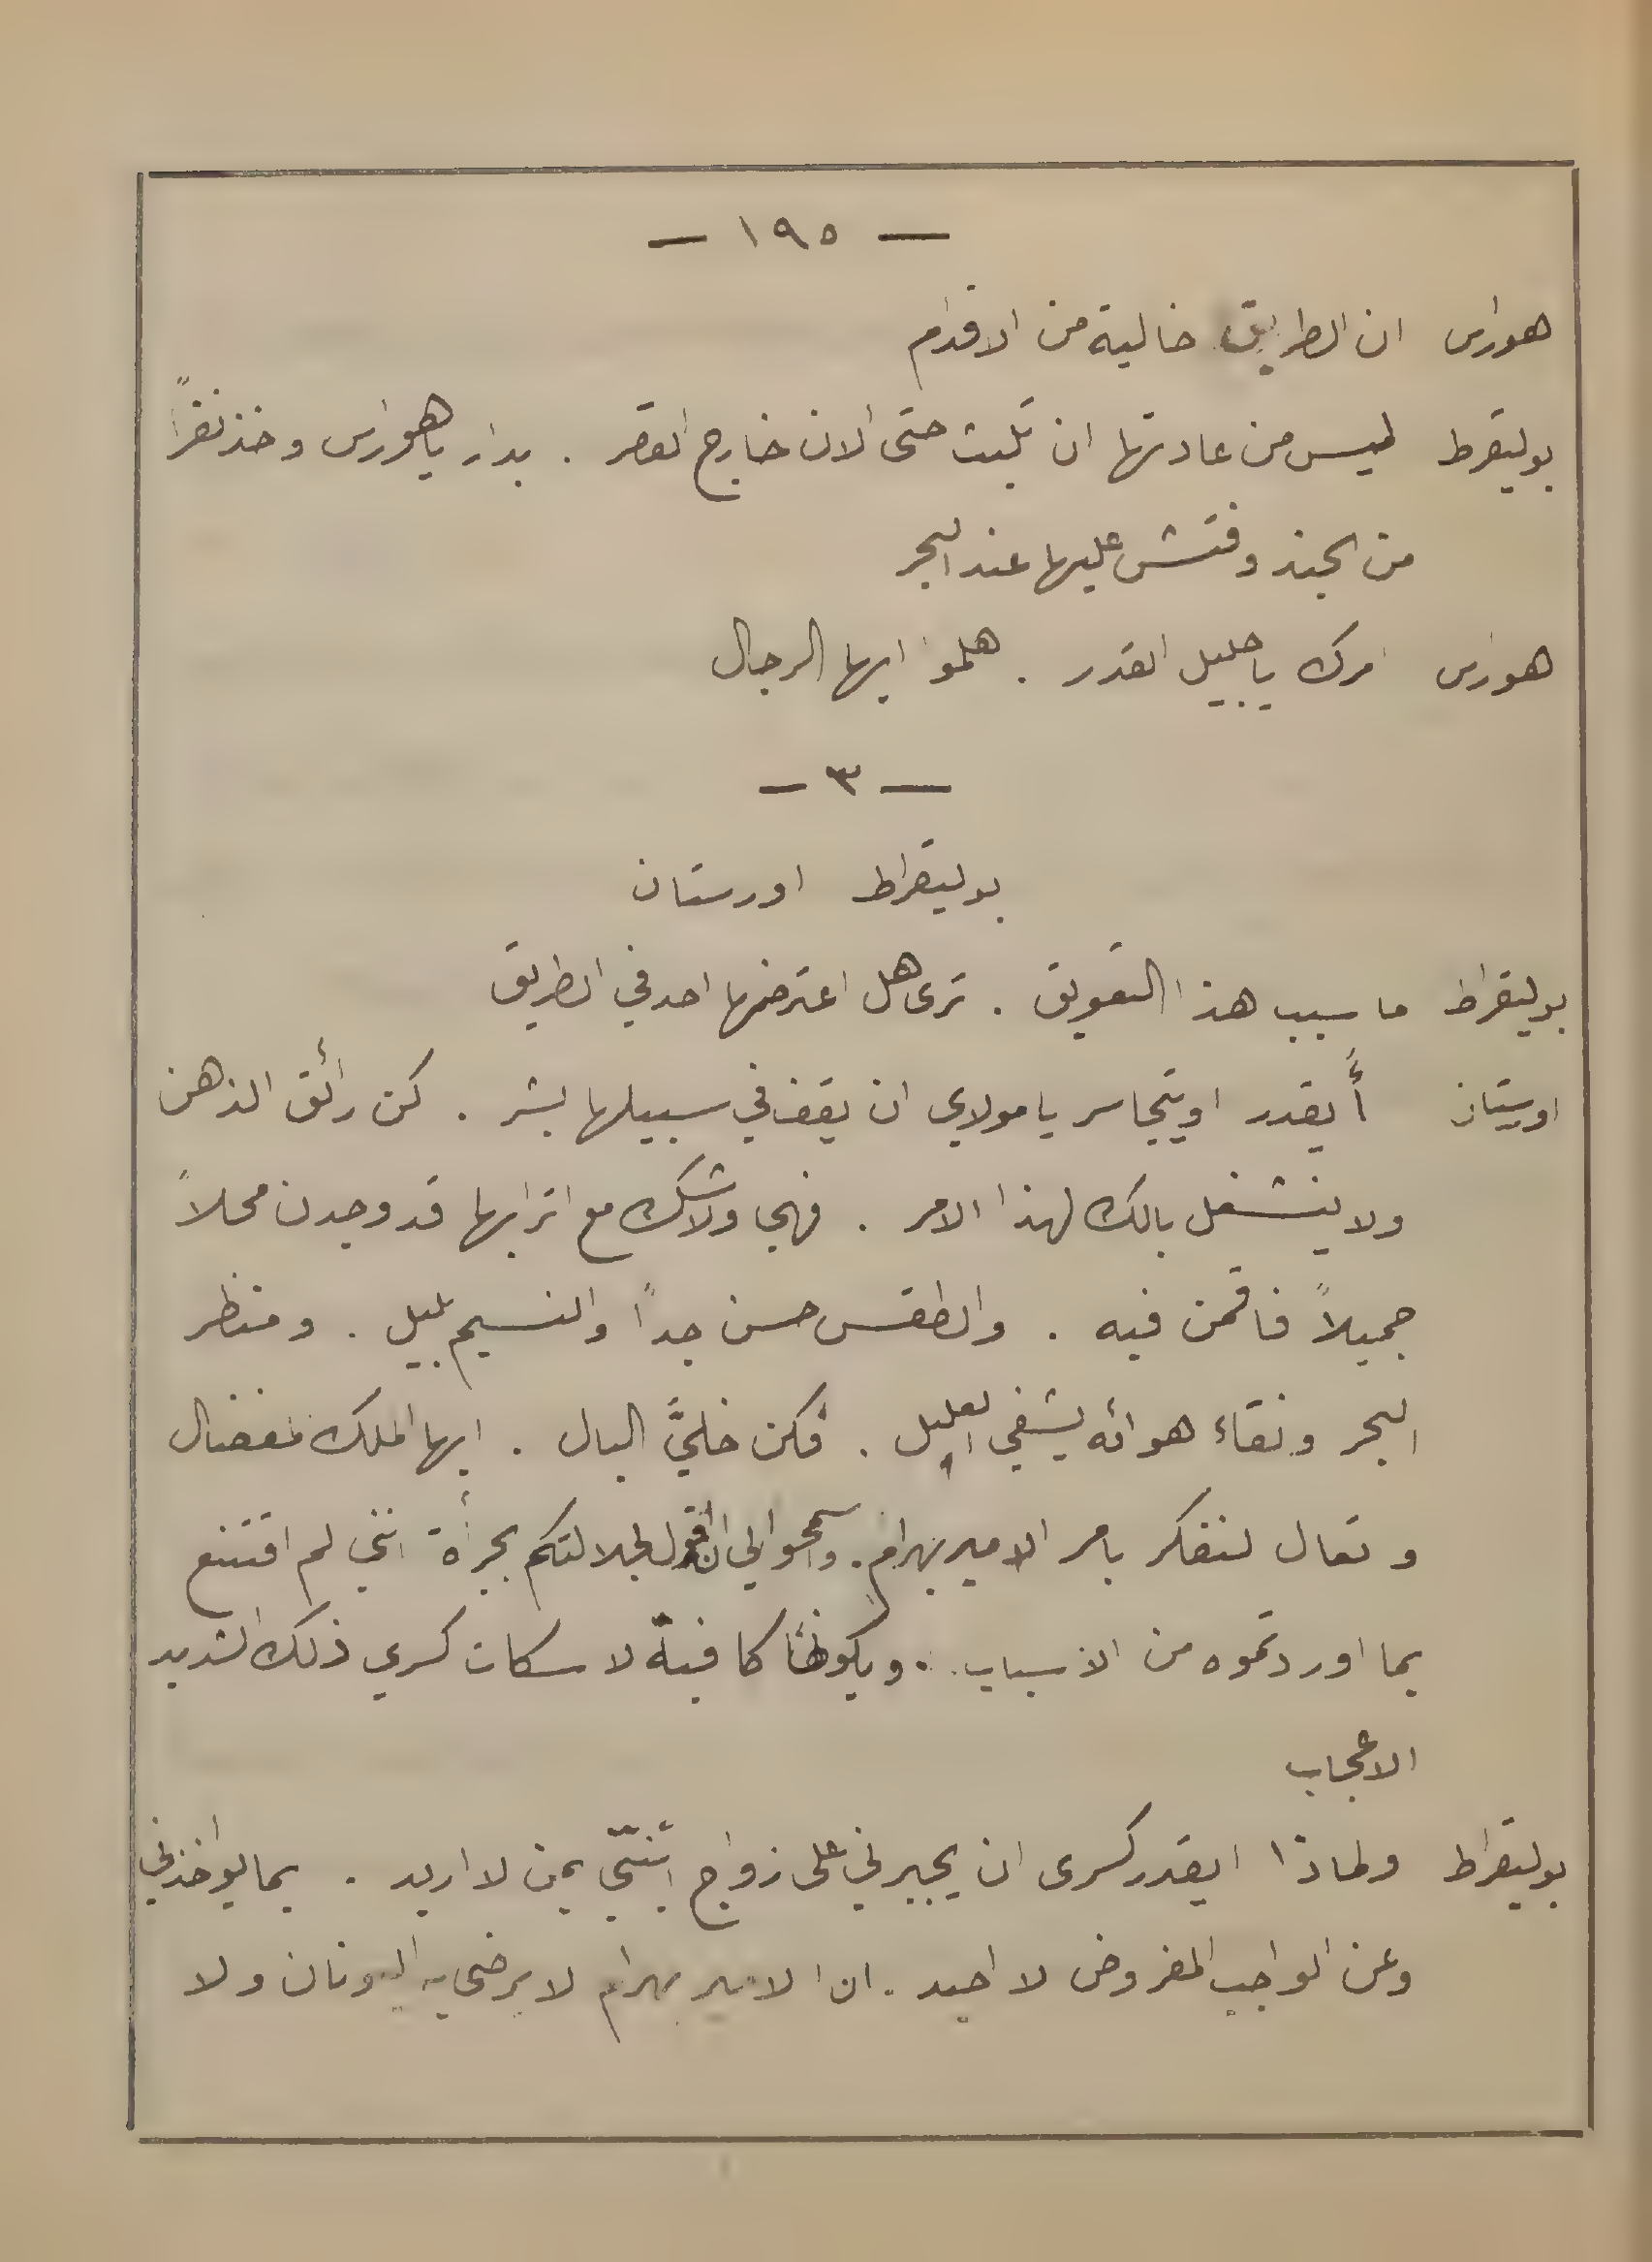 — ١٩٥ —
هوراس ان الطريق خالية من الاقدام
بوليقرط ليس من عادتها ان تلبث حتى الان خارج القصر . بدار يا هوراس وخذ نفراً
من الجند وفتش عليها عند البحر
هوراس امرك يا جليل القدر . هلموا ايها الرجال
— ٣ —
بوليقراط اورستان
بوليقراط ما سبب هذا التعويق . ترى هل اعترضها احد في الطريق
اورستان أيقدر او يتجاسر يا مولاي ان يقف في سبيلها بشر . كن رائق الذهن
ولا ينشغل بالك لهذا الامر . فهي ولا شك مع اترابها قد وجدن محلاً
جميلاً فاقمن فيه . والطقس حسن جداً والنسيم بليل . ومنظر
البحر ونقاء هوائه يشفي العليل . فكن خليَّ البال . ايها الملك المفضال
وتعال لنفكر بامر الامير بهرام . واسمحوا لي ان اقول لجلالتكم بجرأة انني لم اقتنع
بما اوردتموه من الاسباب . ويكونها كافية لاسكات كسرى ذلك الشديد
الاعجاب
بوليقراط ولماذا ايقدر كسرى ان يجبرني على زواج ابنتي بمن لا اريد . بما يواخذني
وعن الواجب المفروض لا احيد . ان الامير بهرام لا يرضى به اليونان ولا